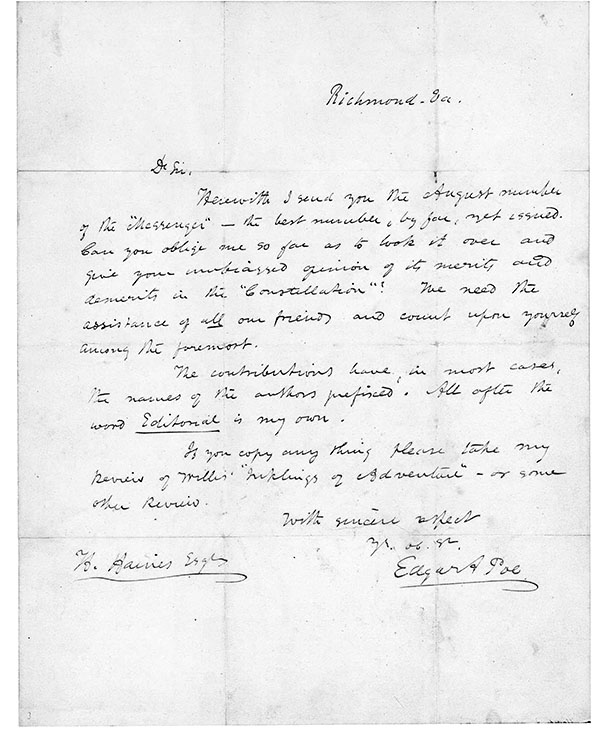 Richmond - Va.
Dr Sir,
Herewith I send you the August number
of the "Messenger" — the best number, by far, yet issued.
Can you oblige me so far as to look it over and
give your unbiassed opinion of its merits and
demerits in the "Constellation"? We need the
assistance of all our friends and count upon yourself
among the foremost.
The contributions have, in most cases,
the names of the authors prefixed. All after the
word Editorial is my own.
If you copy any thing please take my
Review of Willis' "Inklings of Adventure" - or some
other Review.
With sincere respect
Yr. ob. St.
H. Haines Esqr
Edgar A Poe